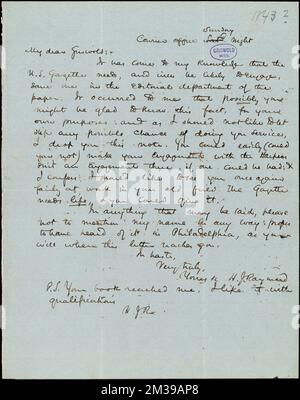 1843?
Sunday
Courier office Night
GRISWOLD
MSS.
My dear Griswold:-
It has come to my knowledge that the
U.S. Gazette needs, and will be likely
some one in the editorial department of the
paper. It occurred to me that possibly you
might be glad to know this fact, for your
own purposes: and as I should not like to let
slip any possible chance of doing you service,
I drop you this note. You could easily (could
you not) make your engagements with the
not one if one could be had: &
I confess I would like to see you once again
fairly at work in your old field. The Gazette
needs life & you could give it.
In anything that may be said, please
not to mention my name in any way: profess
to have heard of it in Philadelphia, as you
will where this letter reaches you.
In haste,
Very truly,
Yours H. J. Raymond
P.S. Your book reached me. I like it with
qualifications
H J R.
alamy
Image ID: 2M39AP8
www.alamy.com